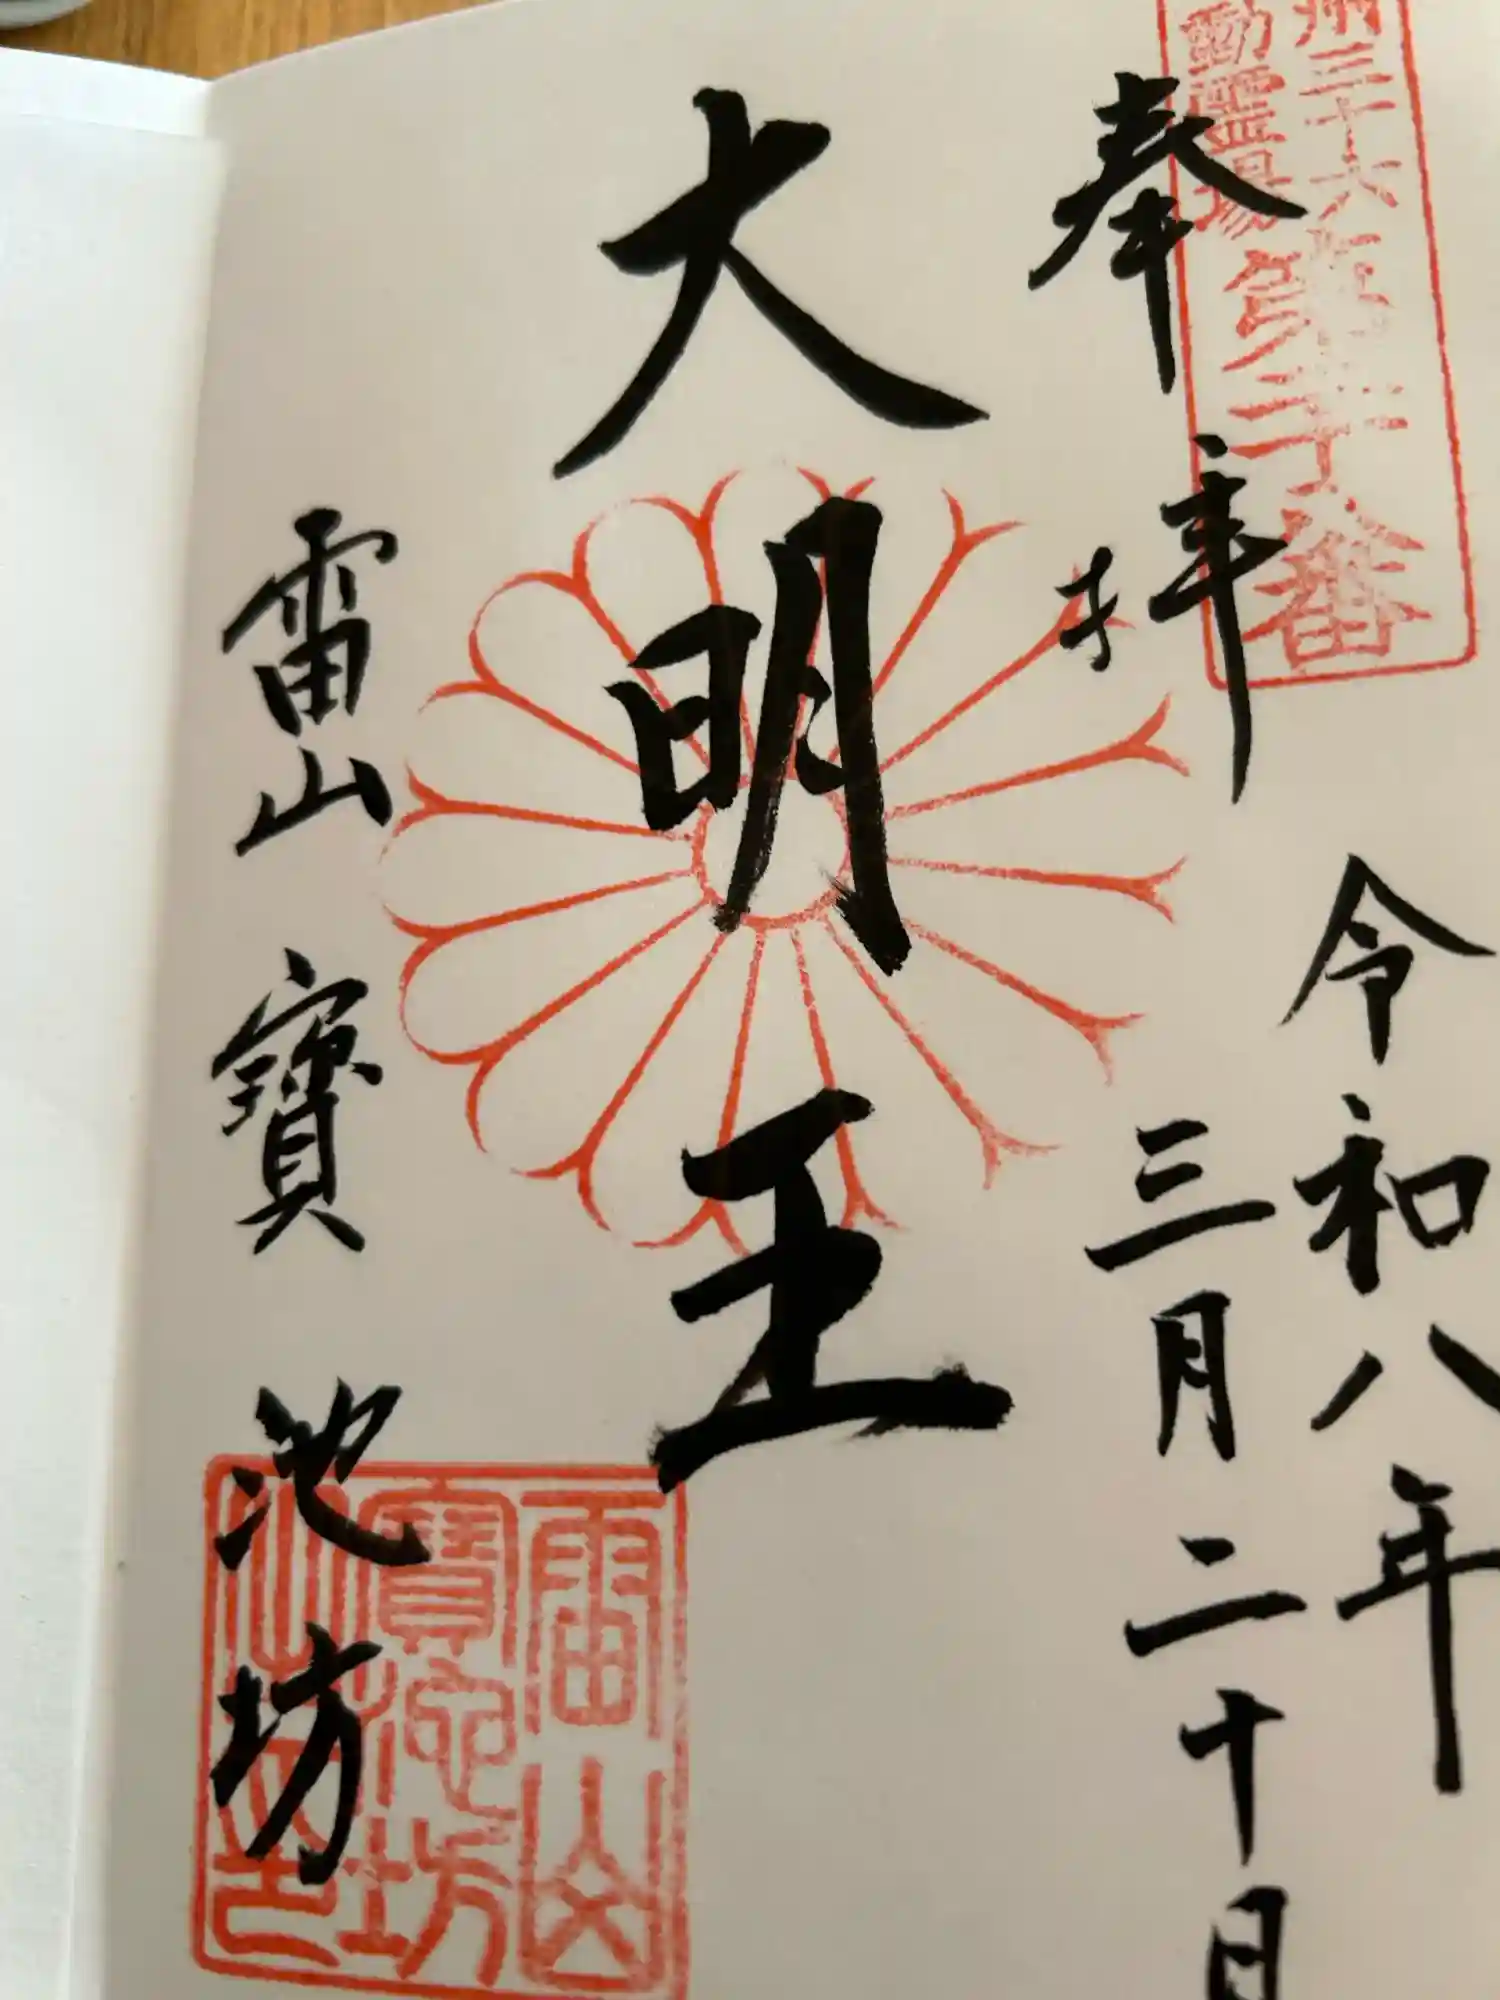 州三十六
動靈場
奉拝
令和八年
三月二十日
大明王
雷山寶池坊
雷山
寶池坊
之印